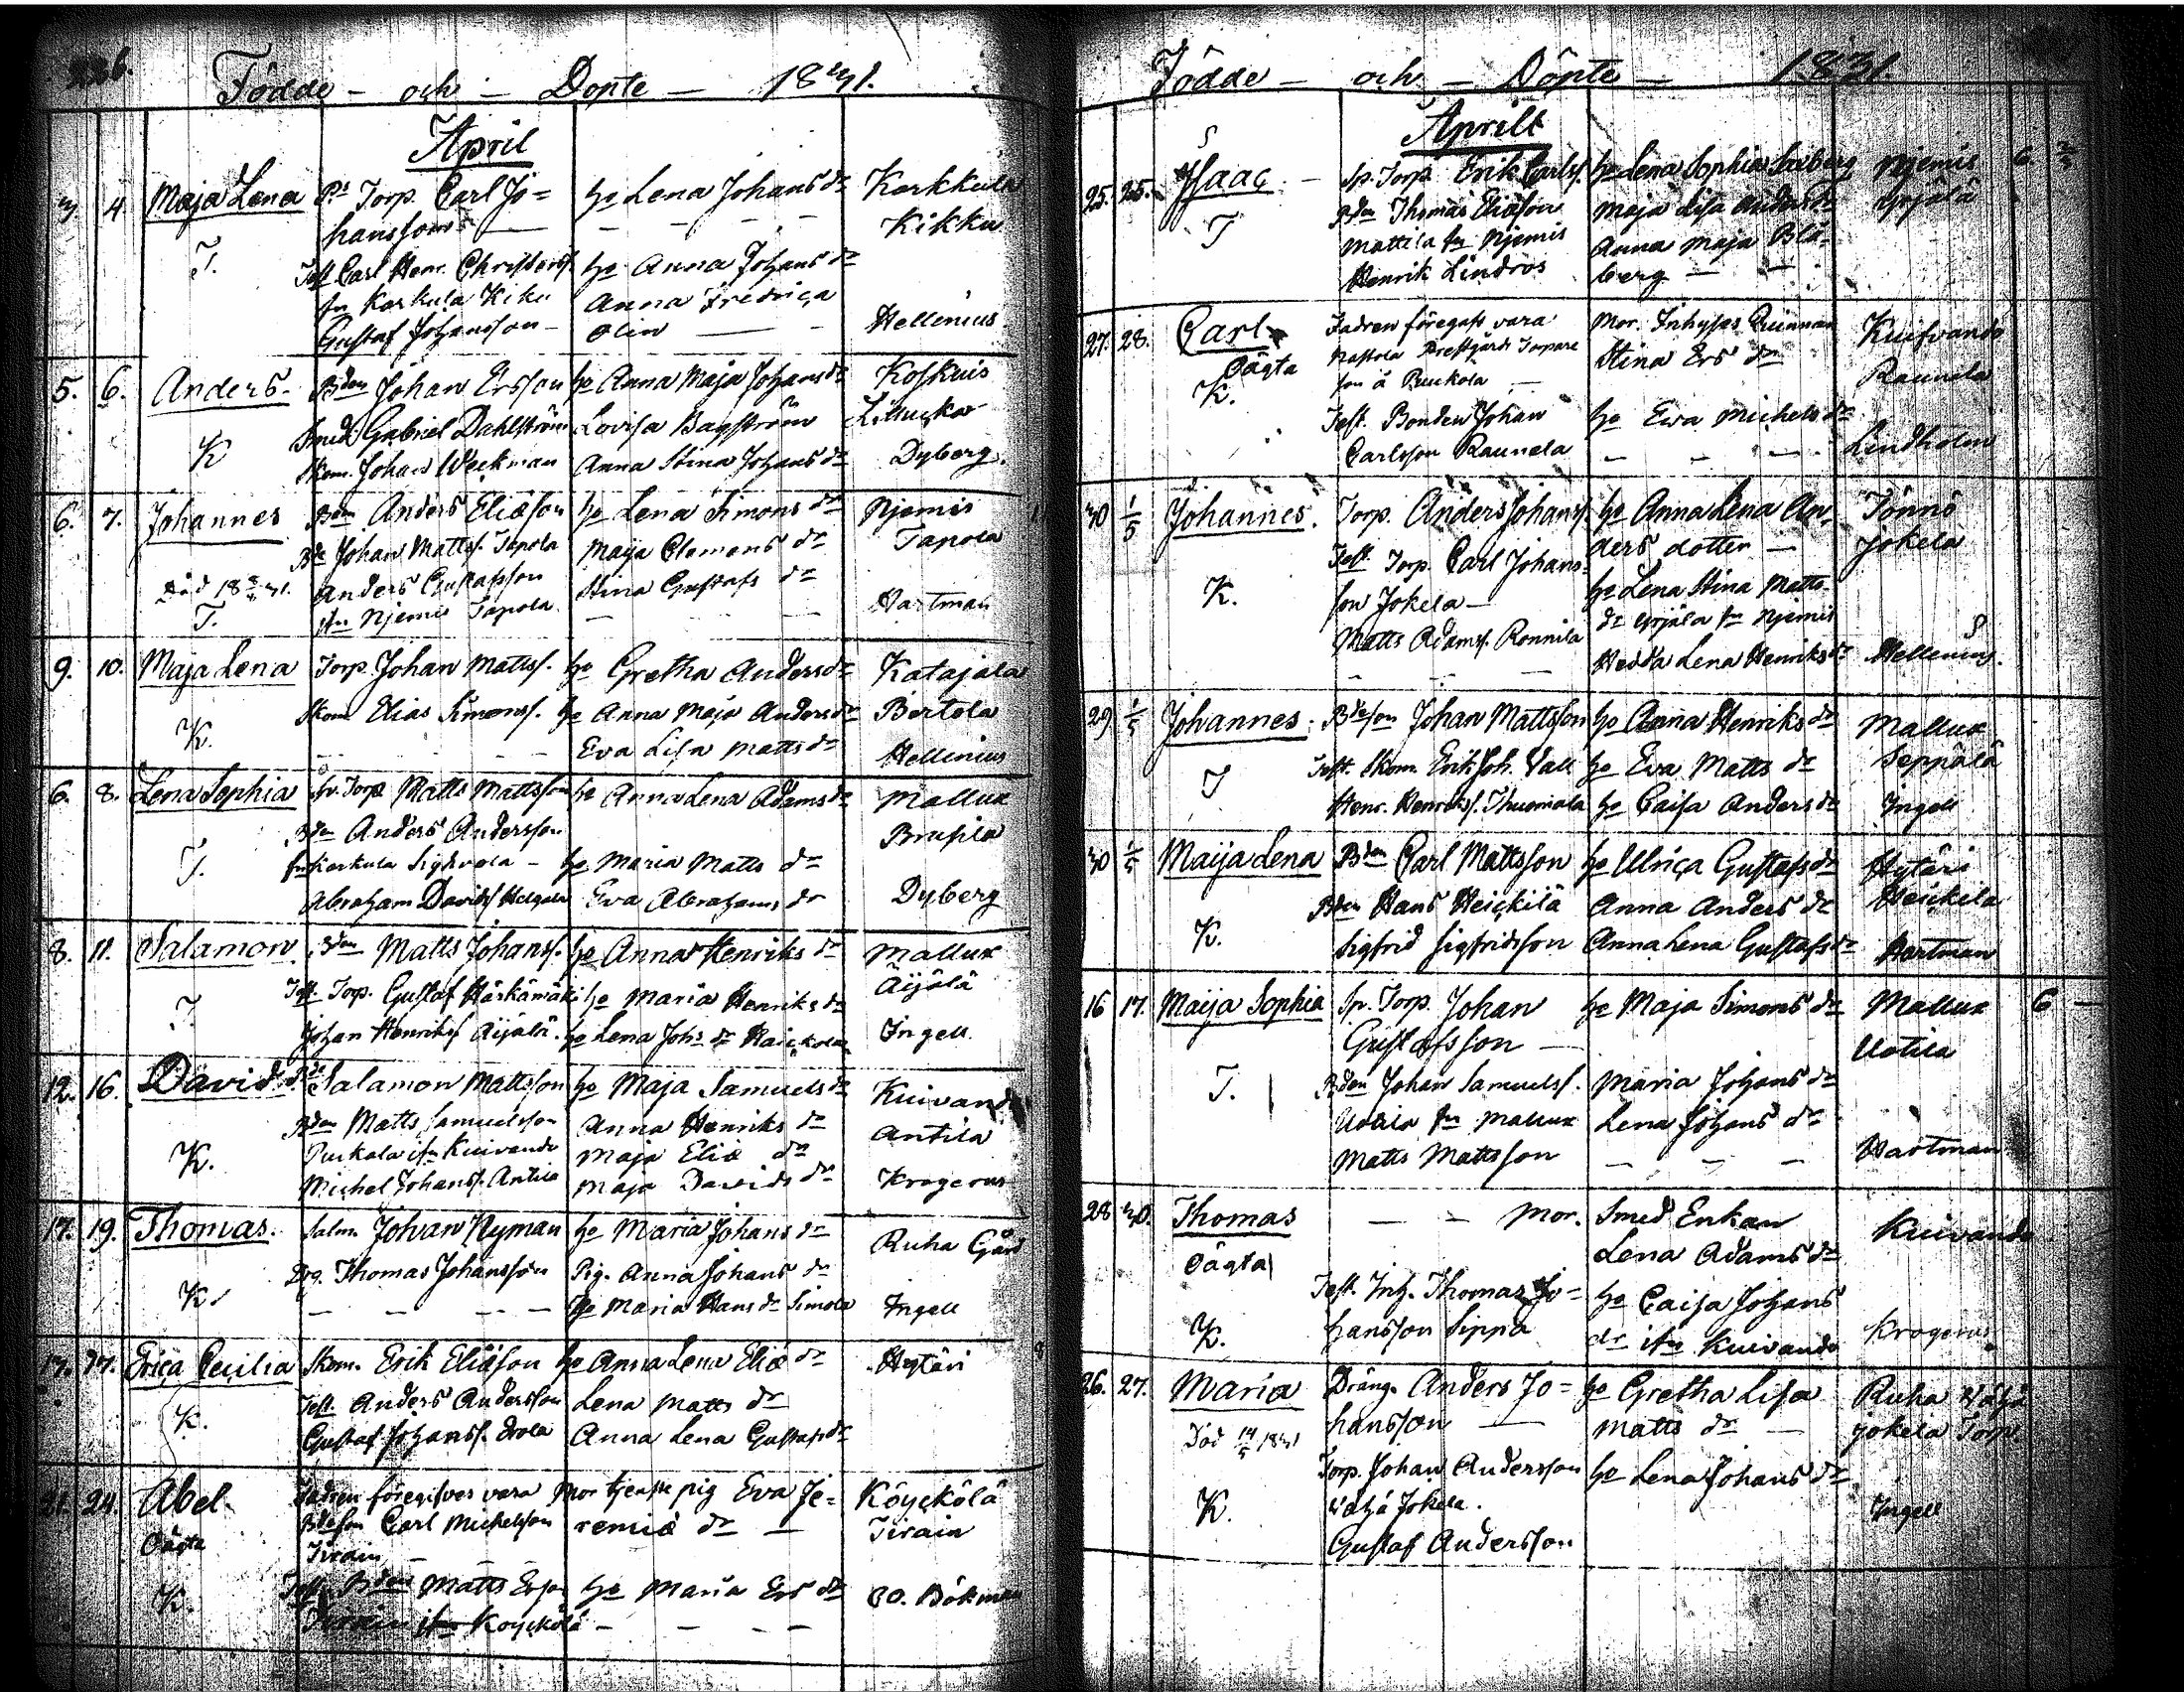 Födde - och - Döpte - 1831.
April
3 4 Maja Lena Ps Torp. Carl Jo= hä Lena Johans dr Korkkula
hansson - - - - Kikku
T. Test Carl Henr. Christerss. hä Anna Johans dr
fn Korkula Kiku Anna Fredrica
Gustaf Johansson - Olin - - Hellenius
5. 6. Anders. Bden Johan Ersson hä Anna Maja Johans dr Koskuis
K Smed. Gabriel Dahlström Lovisa Bagström
Skom. Johan Weckman Anna Stina Johans dr Dyberg.
6. 7. Johannes Bden Anders Eliæson hä Lena Simons dr Njemis
Bde Johan Mattss. Tapola Maija Clemens dr Tapola
Död Anders Gustafsson Stina Gustafs dr
T. ifrn Njemis Tapola - - - Hartman
9. 10. Maja Lena Torp. Johan Mattss. hä Gretha Anders dr Katajala
Skom Elias Simonss. hä Anna Maja Anders dr Bertola
K. - - - Eva Lisa Matts dr Hellenius
6. 8. Lena Sophia Sv. Torp Matts Mattsson hä Anna Lena Adams dr Mallux
Bden Anders Andersson
T. hä Maria Matts dr
Abraham Davidss Eva Abrahams dr Dyberg
8. 11. Salamon. Bden Matts Johanss. hä Anna Henriks dr Mallux
Test. Torp. Gustaf Härkämäki hä Maria Henriks dr Äijälä
T. Johan Henrikss Äijälä. hä Lena Johs dr Ingell
12. 16. David Salamon Mattsson hä Maja Samuels dr Kuivando
Bden Matts Samuelsson Anna Henriks dr Antila
K. ifrn Kuivando Maja Eliæ dr
Michel Johanss. Antila Maja Davids dr Krogerus
17. 19. Thomas. Salm. Johan Nyman hä Maria Johans dr Ruha Gård
Drg. Thomas Johansson Pig. Anna Johans dr
K. - - - - hä Maria Hans dr Simola Ingell
17. 17. Erica Cecilia Skom. Erik Eliæson hä Anna Lena Eliæ dr Hytäri
Test. Anders Andersson Lena Matts dr
K. Gustaf Johanss. Anna Lena Gustafs dr
21. 24. Abel. Fadren föregifves vara Mor tjenste pig Eva Je= Köyckölä
Oägta Bdeson Carl Michelsson remiæ dr - Tirain
Tirain - - -
K. Test. Bden Matts Ersson hä Maria Ers dr Böckman
Tirain ifrn Köyckölä - - - -
Födde - och - Döpte - 1831.
Aprill
25. 25. Isaac - Sv. Torp. Erik Carlss. hä Lena Sophia Njemis 6
T Bden Thomas Eliæson Maja Lisa Anders dr Yrjälä
Mattila frn Njemis Anna Maja Blå-
Henrik Lindros berg - -
27. 28. Carl Fadren föregafs vara Mor. Inhyses Quinnan Kuifvando
Oägta Nastola Prestgårds Torpare Stina Ers dr Raunela
K. son å -
Test. Bonden Johan hä Ewa Michels dr
Carlsson Raunela - - - Lindholm
30 1/5 Johannes. Torp. Anders Johanss. hä Anna Lena An- Tönnö
Test. Torp. Carl Johans- ders dotter - Jokela
K. son Jokela - hä Lena Stina Matts-
Matts Adamss. Ronnila dr Yrjälä frn Njemis
- - - Hedda Lena Henriks dr Hellenius.
29 1/5 Johannes. Bdeson Johan Mattsson hä Anna Henriks dr Mallux
T Test. Skom. Erik Joh. Vall hä Eva Matts dr Seppälä
Henr. Henrikss. Thuomala hä Caisa Anders dr Ingell
30 1/5 Maija Lena Bden Carl Mattsson hä Ulrica Gustafs dr Hytäri
Bden Hans Heickilä Anna Anders dr Heickila
K. Sigfrid Sigfridsson Anna Lena Gustafs dr Hartman
16 17. Maija Sophia Sv. Torp. Johan hä Maja Simons dr Mallux 6 -
Gustafsson - Uotila
T. Bden Johan Samuelss. Maria Johans dr
Uotila frn Mallux Lena Johans dr
Matts Mattsson - - - Hartman
28 30. Thomas - - Mor. Smed Enkan Kuivando
Oägta Lena Adams dr
Test. Inh. Thomas Jo= hä Caisa Johans
K. hansson Sippa dr ifrn Kuivando Krogerus
26. 27. Maria Dräng. Anders Jo= hä Gretha Lisa Ruha Wähä
Död 14/5 1831 hansson - Matts dr - jokela Torp.
Torp. Johan Andersson hä Lena Johans dr
K. Wähä Jokela. Ingell
Gustaf Andersson